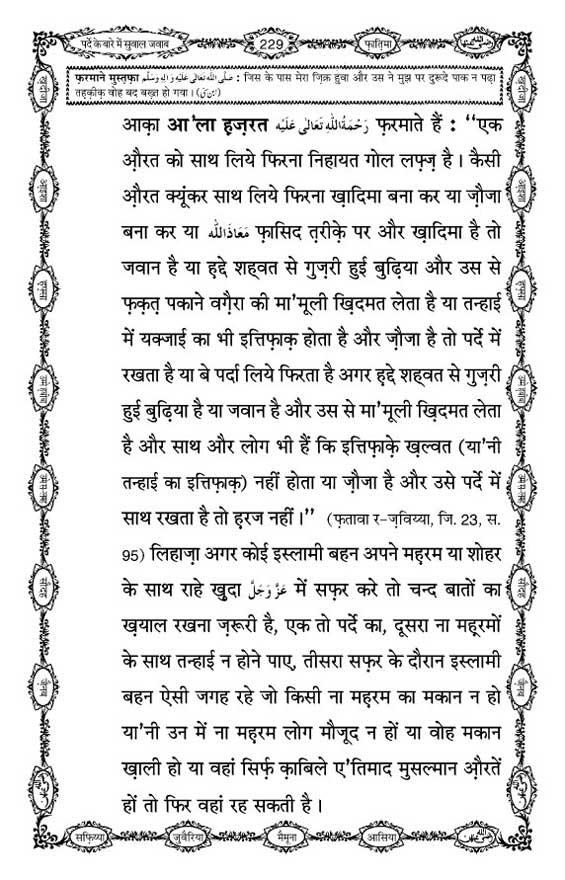 पर्दे के बारे में सुवाल जवाब
229
फ़ातिमा
फ़रमाने मुस्तफ़ा صَلَّى اللّٰهُ تَعَالٰى عَلَيْهِ وَاٰلِهٖ وَسَلَّم : जिस के पास मेरा ज़िक्र हुवा और उस ने मुझ पर दुरूदे पाक न पढ़ा
तह़क़ीक़ वोह बद बख़्त हो गया।
आक़ा आ'ला ह़ज़रत رَحْمَةُ اللّٰهِ تَعَالٰى عَلَيْهِ फ़रमाते हैं : "एक
औ़रत को साथ लिये फिरना निहायत गोल लफ़्ज़ है। कैसी
औ़रत क्यूंकर साथ लिये फिरना ख़ादिमा बना कर या ज़ौजा
बना कर या مَعَاذَاللّٰه फ़ासिद त़रीके़ पर और ख़ादिमा है तो
जवान है या ह़द्दे शह्वत से गुज़री हुई बुढ़िया और उस से
फ़क़त़ पकाने वगै़रा की मा'मूली ख़िदमत लेता है या तन्हाई
में यक्जाई का भी इत्तिफ़ाक़ होता है और ज़ौजा है तो पर्दे में
रखता है या बे पर्दा लिये फिरता है अगर ह़द्दे शह्वत से गुज़री
हुई बुढ़िया है या जवान है और उस से मा'मूली ख़िदमत लेता
है और साथ और लोग भी हैं कि इत्तिफ़ाक़े ख़ल्वत (या'नी
तन्हाई का इत्तिफ़ाक़) नहीं होता या ज़ौजा है और उसे पर्दे में
साथ रखता है तो ह़रज नहीं।" (फ़तावा र-ज़विय्या, जि. 23, स.
95) लिहाज़ा अगर कोई इस्लामी बहन अपने मह़रम या शोहर
के साथ राहे खुदा عَزَّوَجَلَّ में सफ़र करे तो चन्द बातों का
ख़याल रखना ज़रूरी है, एक तो पर्दे का, दूसरा ना मह़रमों
के साथ तन्हाई न होने पाए, तीसरा सफ़र के दौरान इस्लामी
बहन ऐसी जगह रहे जो किसी ना मह़रम का मकान न हो
या'नी उन में ना मह़रम लोग मौजूद न हों या वोह मकान
ख़ाली हो या वहां सिर्फ़ क़ाबिले ए'तिमाद मुसल्मान औ़रतें
हों तो फिर वहां रह सकती है।
सफ़िय्या
जुवैरिया
मैमूना
आसिया